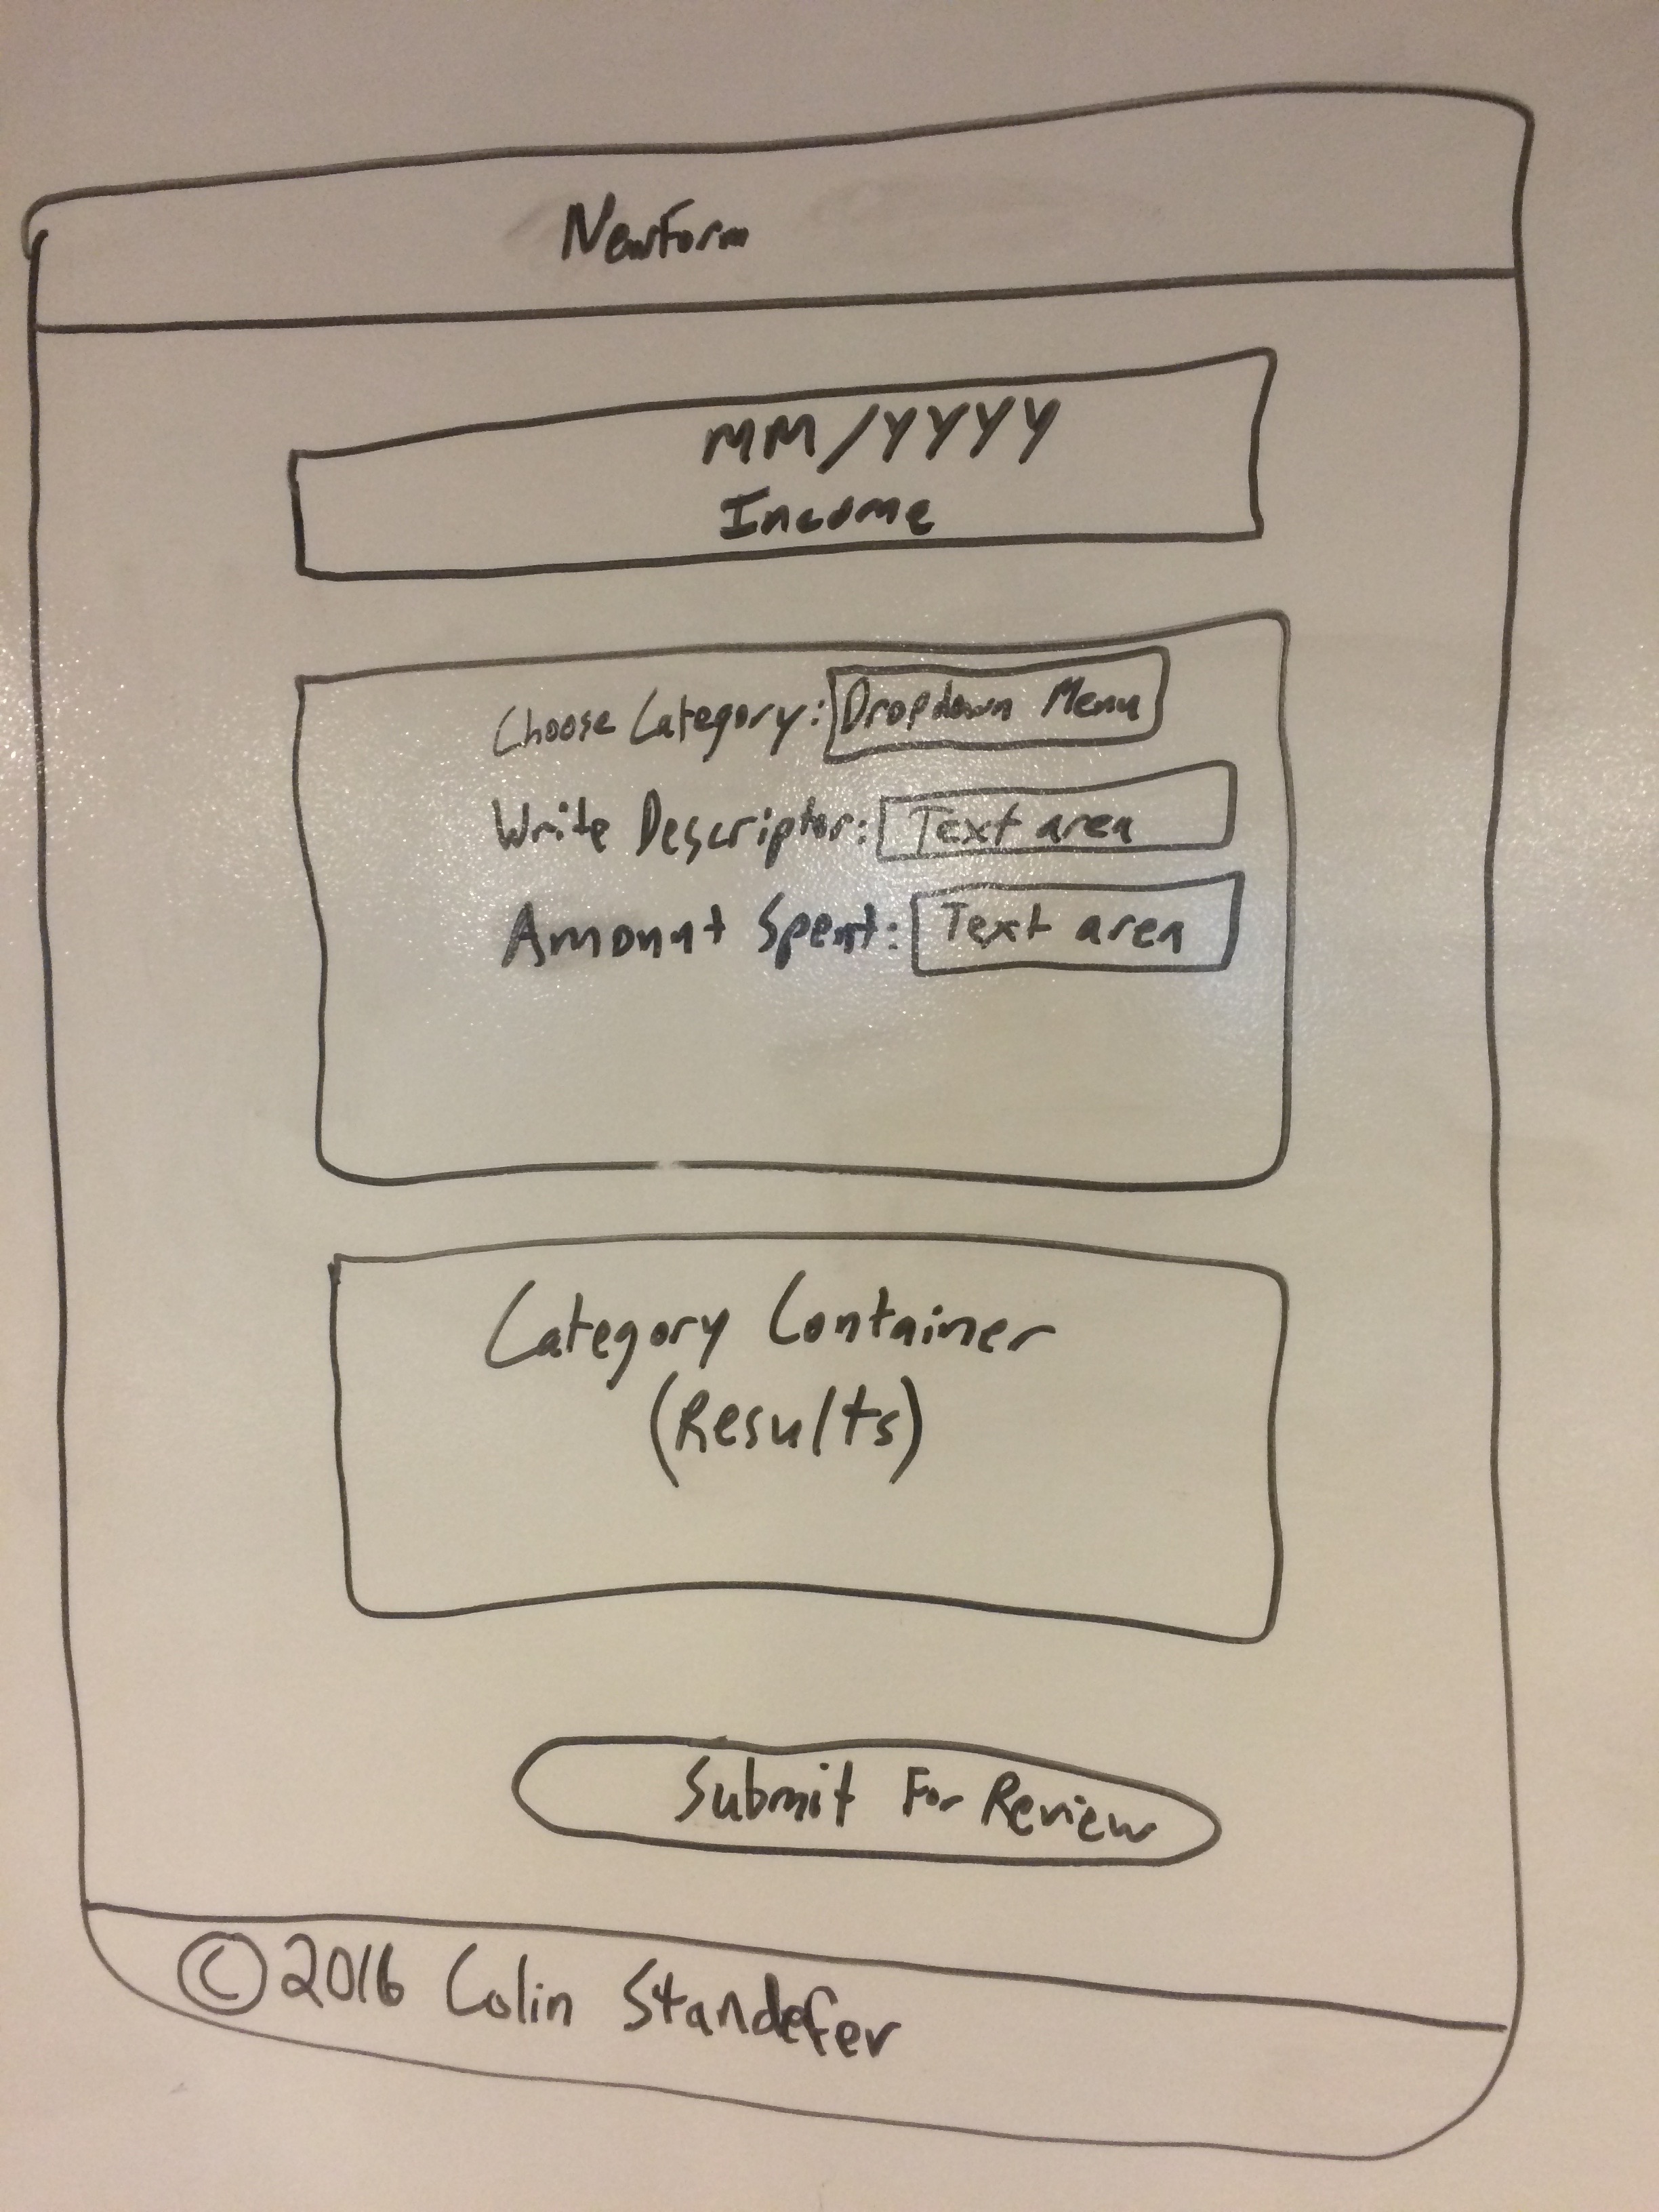 NewForm
MM/YYYY
Income
Choose Category: Dropdown Menu
Write Descriptor: Text area
Amount Spent: Text area
Category Container
(Results)
Submit For Review
© 2016 Colin Standefer